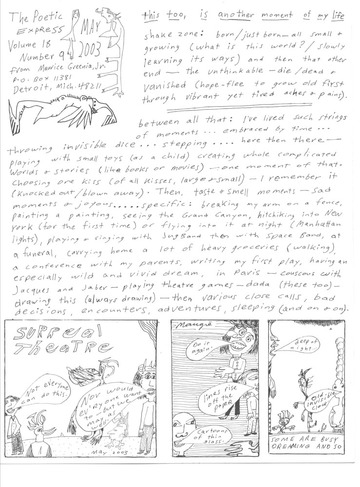 The Poetic
Express
Volume 18
Number 9
MAY
2003
from Maurice Greenia, Jr.
P.O. Box 11381
Detroit, Mich 48211
this too, is another moment of my life
shake zone: born/just born—all small +
growing (what is this world? / slowly
learning its ways) and then that other
end — the unthinkable — die / dead +
vanished (hope-flee to grow old first
through vibrant yet tired aches + pains).
between all that: I've lived such strings
of moments... embraced by time...
throwing invisible dice... stepping.... here then there—
playing with small toys (as a child) creating whole complicated
worlds + stories (like books or movies) — one moment of that—
choosing one kiss (of all kisses, large + small) — I remember it
(knocked out/blown away). Then, taste + smell moments — sad
moments + joyous.....specific: breaking my arm on a fence,
painting a painting, seeing the Grand Canyon, hitchiking into New
York (for the first time) or flying into it at night (Manhattan
lights), playing + singing with JugBand then with Spare Band, at
a funeral, carrying home a lot of heavy groceries (walking)
a conference with my parents, writing my first play, having an
especially wild and vivid dream, in Paris — conscious with
Jacques and Jaker — playing theatre games — dada (these too) —
drawing this (always drawing) — then various close calls, bad
decisions, encounters, adventures, sleeping (and on + on).
SURREAL
THEATRE
Not everyone
can do this
Now would
everyone
May 2003
Do it
again
lines rise
off the
paper
Cartoons of
thin
glass
SOME ARE BUSY
DREAMING AND SO